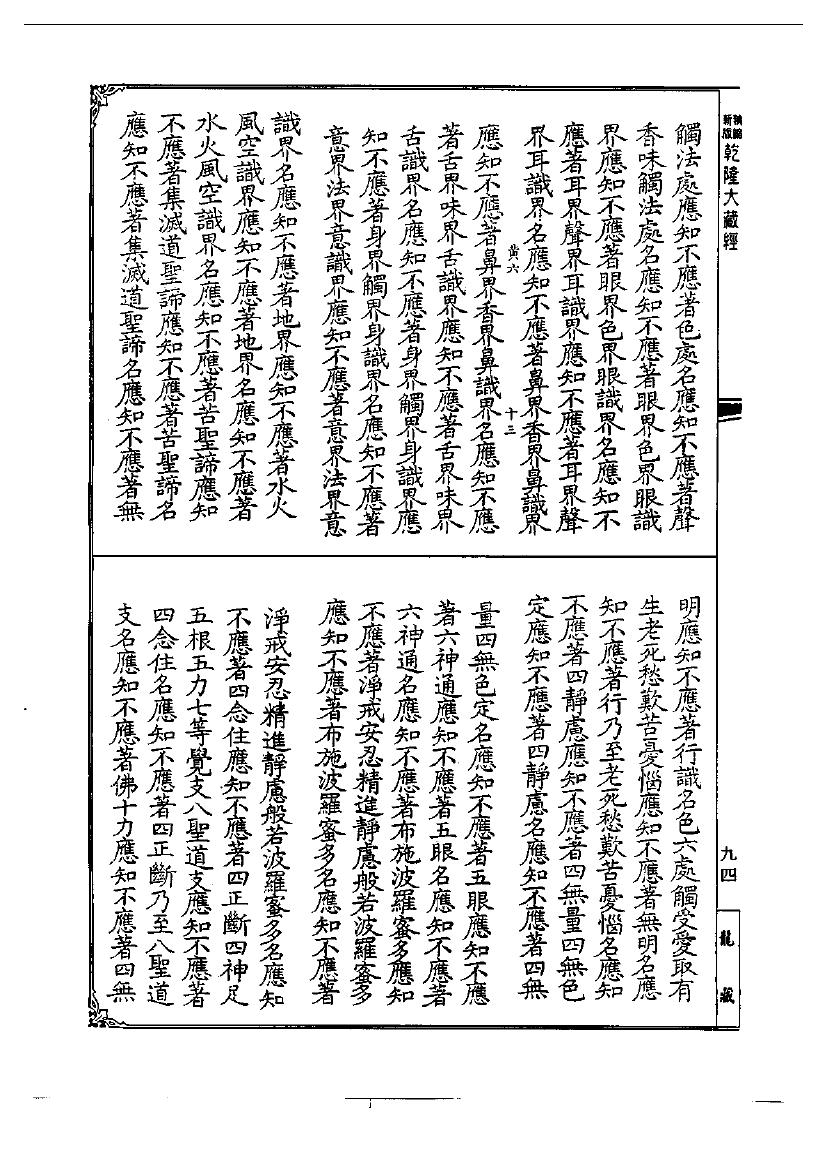 新版
乾隆大藏經
九四
龍藏
觸法處應知不應著色處名應知不應著聲
香味觸法處名應知不應著眼界色界眼識
界應知不應著眼界色界眼識界名應知不
應著耳界聲界耳識界應知不應著耳界聲
界耳識界名應知不應著鼻界香界鼻識界
黃六 十三
應知不應著鼻界香界鼻識界名應知不應
著舌界味界舌識界應知不應著舌界味界
舌識界名應知不應著身界觸界身識界應
知不應著身界觸界身識界名應知不應著
意界法界意識界應知不應著意界法界意
識界名應知不應著地界應知不應著水火
風空識界應知不應著地界名應知不應著
水火風空識界名應知不應著苦聖諦應知
不應著集滅道聖諦應知不應著苦聖諦名
應知不應著集滅道聖諦名應知不應著無
明應知不應著行識名色六處觸受愛取有
生老死愁歎苦憂惱應知不應著無明名應
知不應著行乃至老死愁歎苦憂惱名應知
不應著四靜慮應知不應著四無量四無色
定應知不應著四靜慮名應知不應著四無
量四無色定名應知不應著五眼應知不應
著六神通應知不應著五眼名應知不應著
六神通名應知不應著布施波羅蜜多應知
不應著淨戒安忍精進靜慮般若波羅蜜多
應知不應著布施波羅蜜多名應知不應著
淨戒安忍精進靜慮般若波羅蜜多名應知
不應著四念住應知不應著四正斷四神足
五根五力七等覺支八聖道支應知不應著
四念住名應知不應著四正斷乃至八聖道
支名應知不應著佛十力應知不應著四無